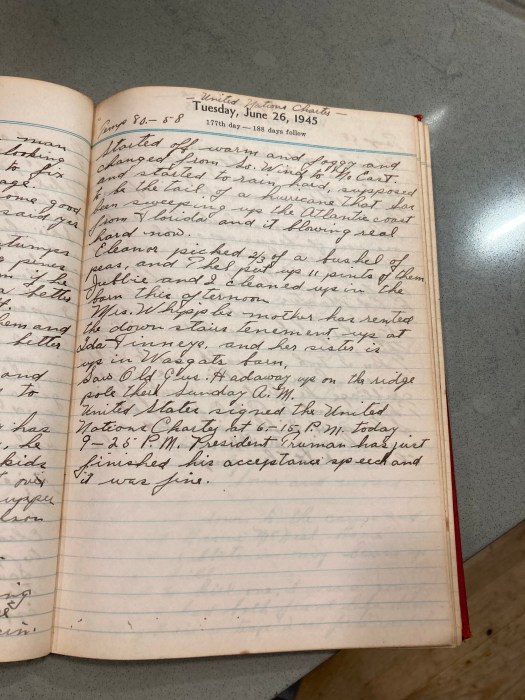 man
looking
to fix
age.
ome good
said yer
tumps
g pines
m if he
a better
it.
hem and
better
and
to
y has
, he
kids
t over
upper
lson
ing
ein.
— United Nations Charter —
Tuesday, June 26, 1945
Temp 80 — 58
177th day — 188 days follow
Started off warm and foggy and
changed from So. Wind to N. East
and started to rain, hard, supposed
to be the tail of a hurricane that has
been sweeping up the Atlantic coast
from Florida and it blowing real
hard now.
Eleanor picked 2/3 of a bushel of
peas, and Thel put up 11 pints of them
Jubbie and I cleaned up in the
barn this afternoon
Mrs. Whipples mother has rented
the down stairs tenement up at
Ida Finneys, and her sister is
up in Wasgats barn,
Saw Old Gus. Hadaway up on the ridge
pole there Sunday A. M.
United States signed the United
Nations Charter at 6-15 P. M. today
9-25 P. M. President Truman has just
finished his acceptance speech and
it was fine.